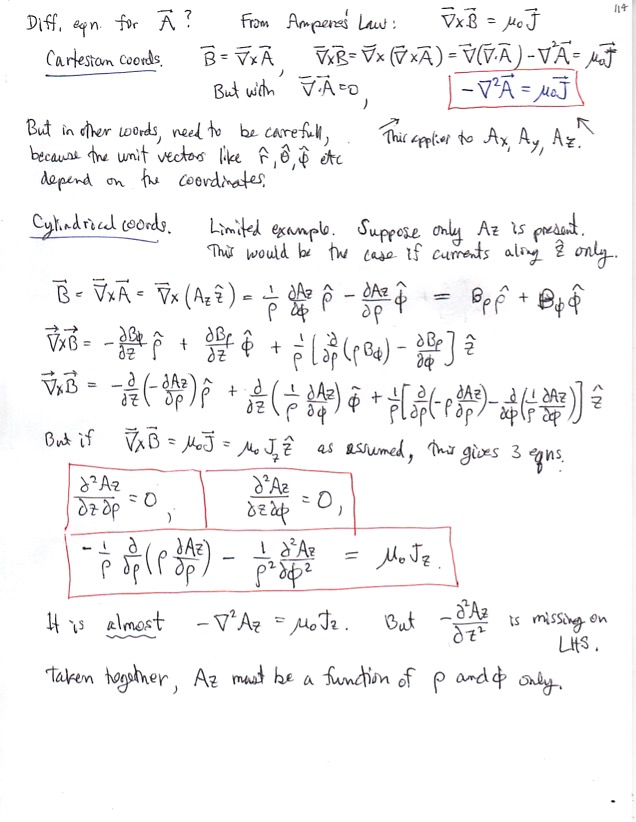 114
Diff. eqn. for A⃗ ? From Ampere's Law: ∇⃗×B⃗ = μ₀J⃗
Cartesian coords. B⃗ = ∇⃗×A⃗, ∇⃗×B⃗ = ∇⃗×(∇⃗×A⃗) = ∇⃗(∇⃗·A⃗) − ∇²A⃗ = μ₀J⃗
But with ∇⃗·A⃗=0, −∇²A⃗ = μ₀J⃗
But in other coords, need to be carefull, This applies to Ax, Ay, Az.
because the unit vectors like r̂, θ̂, φ̂ etc
depend on the coordinates.
Cylindrical coords. Limited example. Suppose only Az is present.
This would be the case if currents along ẑ only.
B⃗ = ∇⃗×A⃗ = ∇⃗×(Az ẑ) = 1/ρ ∂Az/∂φ ρ̂ − ∂Az/∂ρ φ̂ = Bρ ρ̂ + Bφ φ̂
∇⃗×B⃗ = −∂Bφ/∂z ρ̂ + ∂Bρ/∂z φ̂ + 1/ρ [∂/∂ρ (ρBφ) − ∂Bρ/∂φ] ẑ
∇⃗×B⃗ = −∂/∂z (−∂Az/∂ρ) ρ̂ + ∂/∂z (1/ρ ∂Az/∂φ) φ̂ + 1/ρ [∂/∂ρ (−ρ ∂Az/∂ρ) − ∂/∂φ (1/ρ ∂Az/∂φ)] ẑ
But if ∇⃗×B⃗ = μ₀J⃗ = μ₀ Jz ẑ as assumed, this gives 3 eqns.
∂²Az/∂z∂ρ = 0, ∂²Az/∂z∂φ = 0,
−1/ρ ∂/∂ρ (ρ ∂Az/∂ρ) − 1/ρ² ∂²Az/∂φ² = μ₀Jz.
It is almost −∇²Az = μ₀Jz. But −∂²Az/∂z² is missing on
LHS.
Taken together, Az must be a function of ρ and φ only.